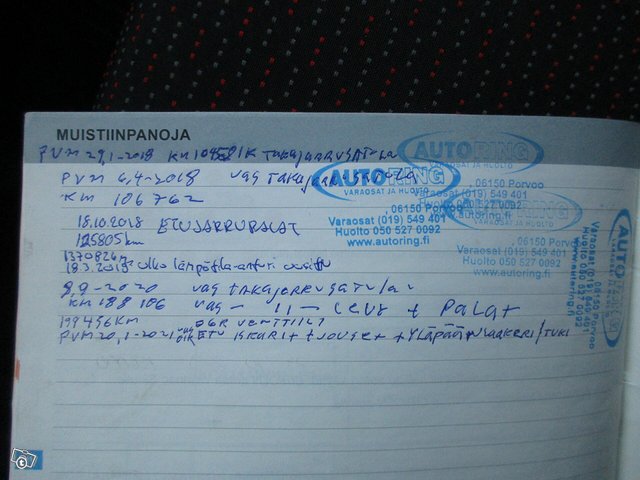 MUISTIINPANOJA
PVM 29,1-2018 KM 104501K TAKAJARRUSATULA
PVM 4,4-2018 VAS TAKAJARRUSATULA
KM 106762
18.10.2018 ETUJARRUPALAT
125805km
137082km
18.3.2019 ulko lämpötila-anturi uusittu
9,9-2020 VAS TAKAJARRUSATULA
KM 188106 VAS - 11 - LEVY + PALAT
199456KM EGR VENTTIILI
PVM 20,1-2021 VAS OIK ETU ISKARIT + JOUSET + YLÄPÄÄN LAAKERI/TUKI
AUTORING
VARAOSAT JA HUOLTO
06150 Porvoo
Varaosat (019) 549 401
Huolto 050 527 0092
www.autoring.fi
AUTORING
VARAOSAT JA HUOLTO
06150 Porvoo
Varaosat (019) 549 401
Huolto 050 527 0092
www.autoring.fi
VARAOSAT JA HUOLTO
06150 Porvoo
Varaosat (019) 549 401
Huolto 050 527 0092
www.autoring.fi
06150 Porvoo
Varaosat (019) 549 401
Huolto 050 527 0092
www.autoring.fi